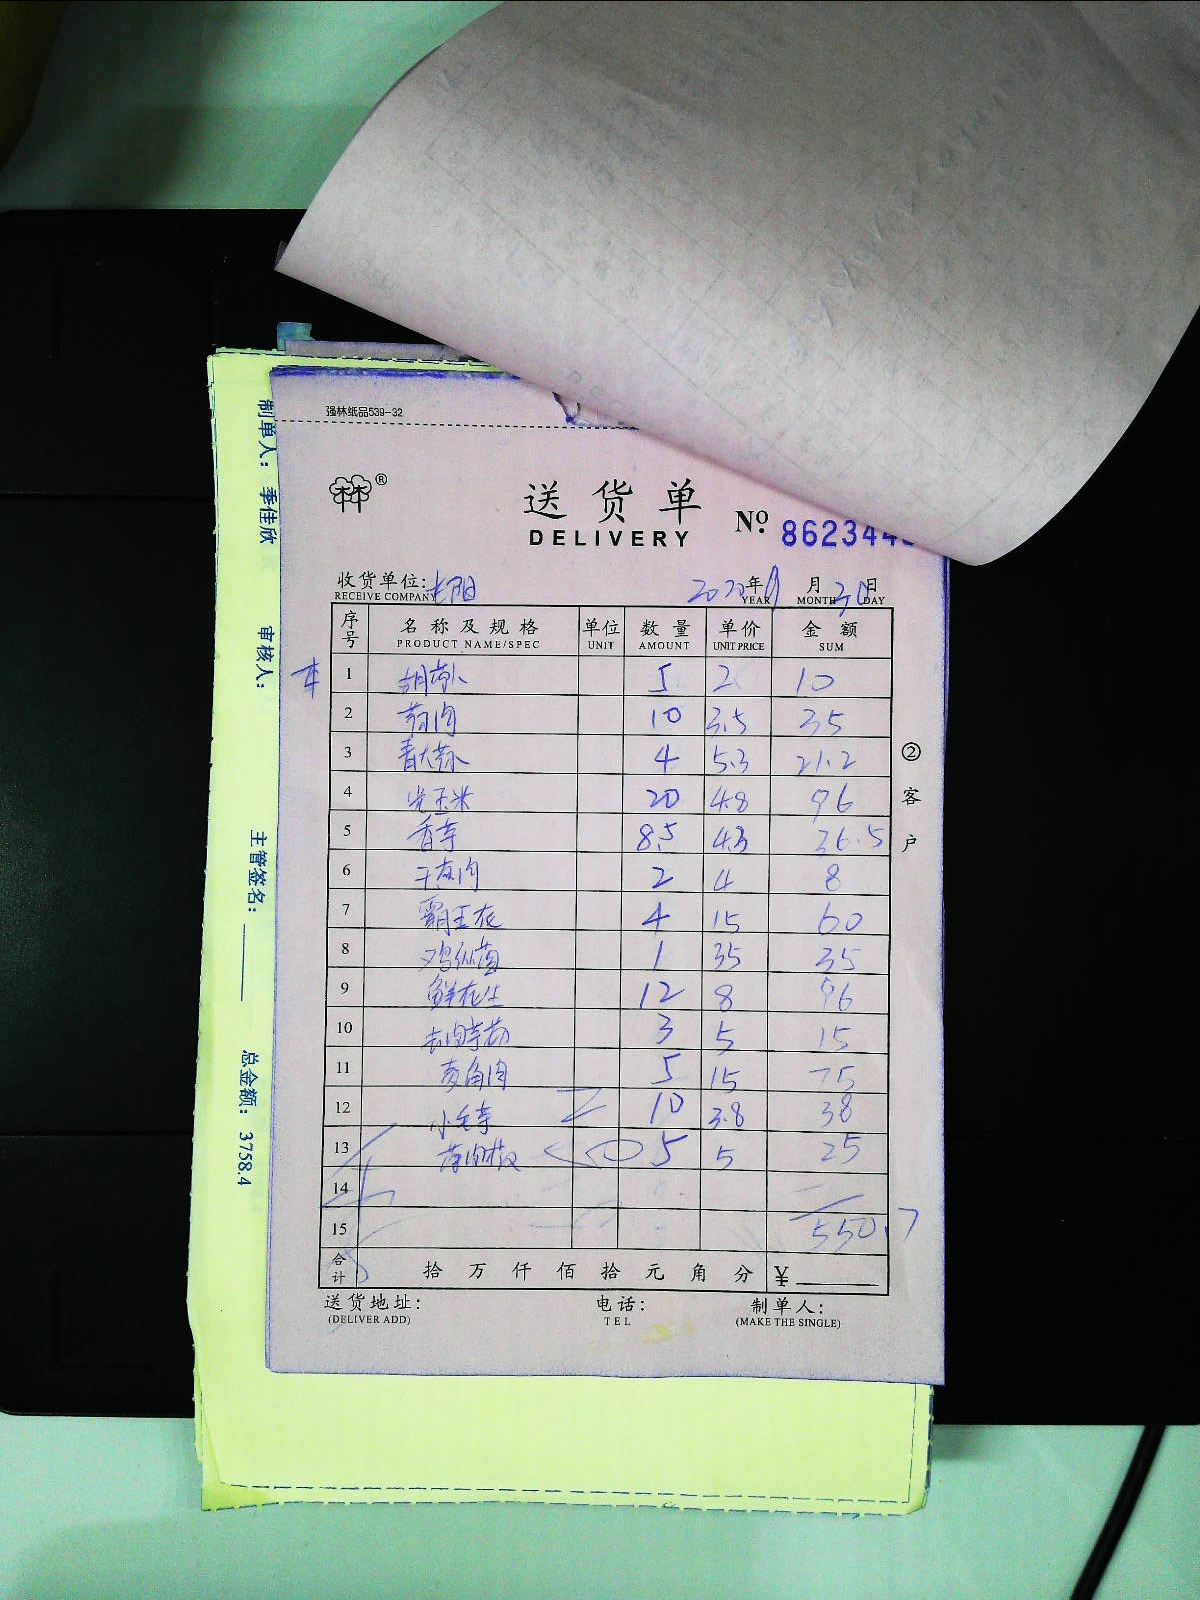 强林纸品539-32
林林®
送货单
DELIVERY
No. 862344
收货单位:
RECEIVE COMPANY
年 月 日
YEAR MONTH DAY
序号 名称及规格 单位 数量 单价 金额
PRODUCT NAME/SPEC UNIT AMOUNT UNIT PRICE SUM
1 胡萝卜 5 2 10
2 10 3.5 35
3 青大萝卜 4 5.3 21.2
4 光玉米 20 4.8 96
5 香芋 8.5 4.3 36.5
6 2 4 8
7 霸王花 4 15 60
8 鸡纵菌 1 35 35
9 鲜花生 12 8 96
10 3 5 15
11 菱角肉 5 15 75
12 小毛芋 10 3.8 38
13 5 5 25
14
15 550.7
合计 拾 万 仟 佰 拾 元 角 分 ¥
送货地址: 电话: 制单人:
(DELIVER ADD) TEL (MAKE THE SINGLE)
②客户
制单人: 季佳欣
审核人:
主管签名:
总金额: 3758.4